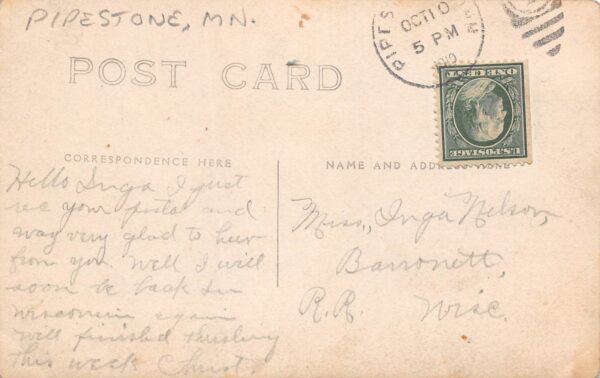 PIPESTONE, MN.
PIPES
MN
OCT 10
5 PM
1910
POST CARD
ONE CENT
U.S. POSTAGE
CORRESPONDENCE HERE
Hello Inga I just
rec your postal and
way very glad to heer
from you. Well I will
soon be back in
wisconsin again
will finished thrishing
this week Christ.
NAME AND ADDRESS HERE
Miss, Inga Nelson,
Barronett,
R.R. Wisc.